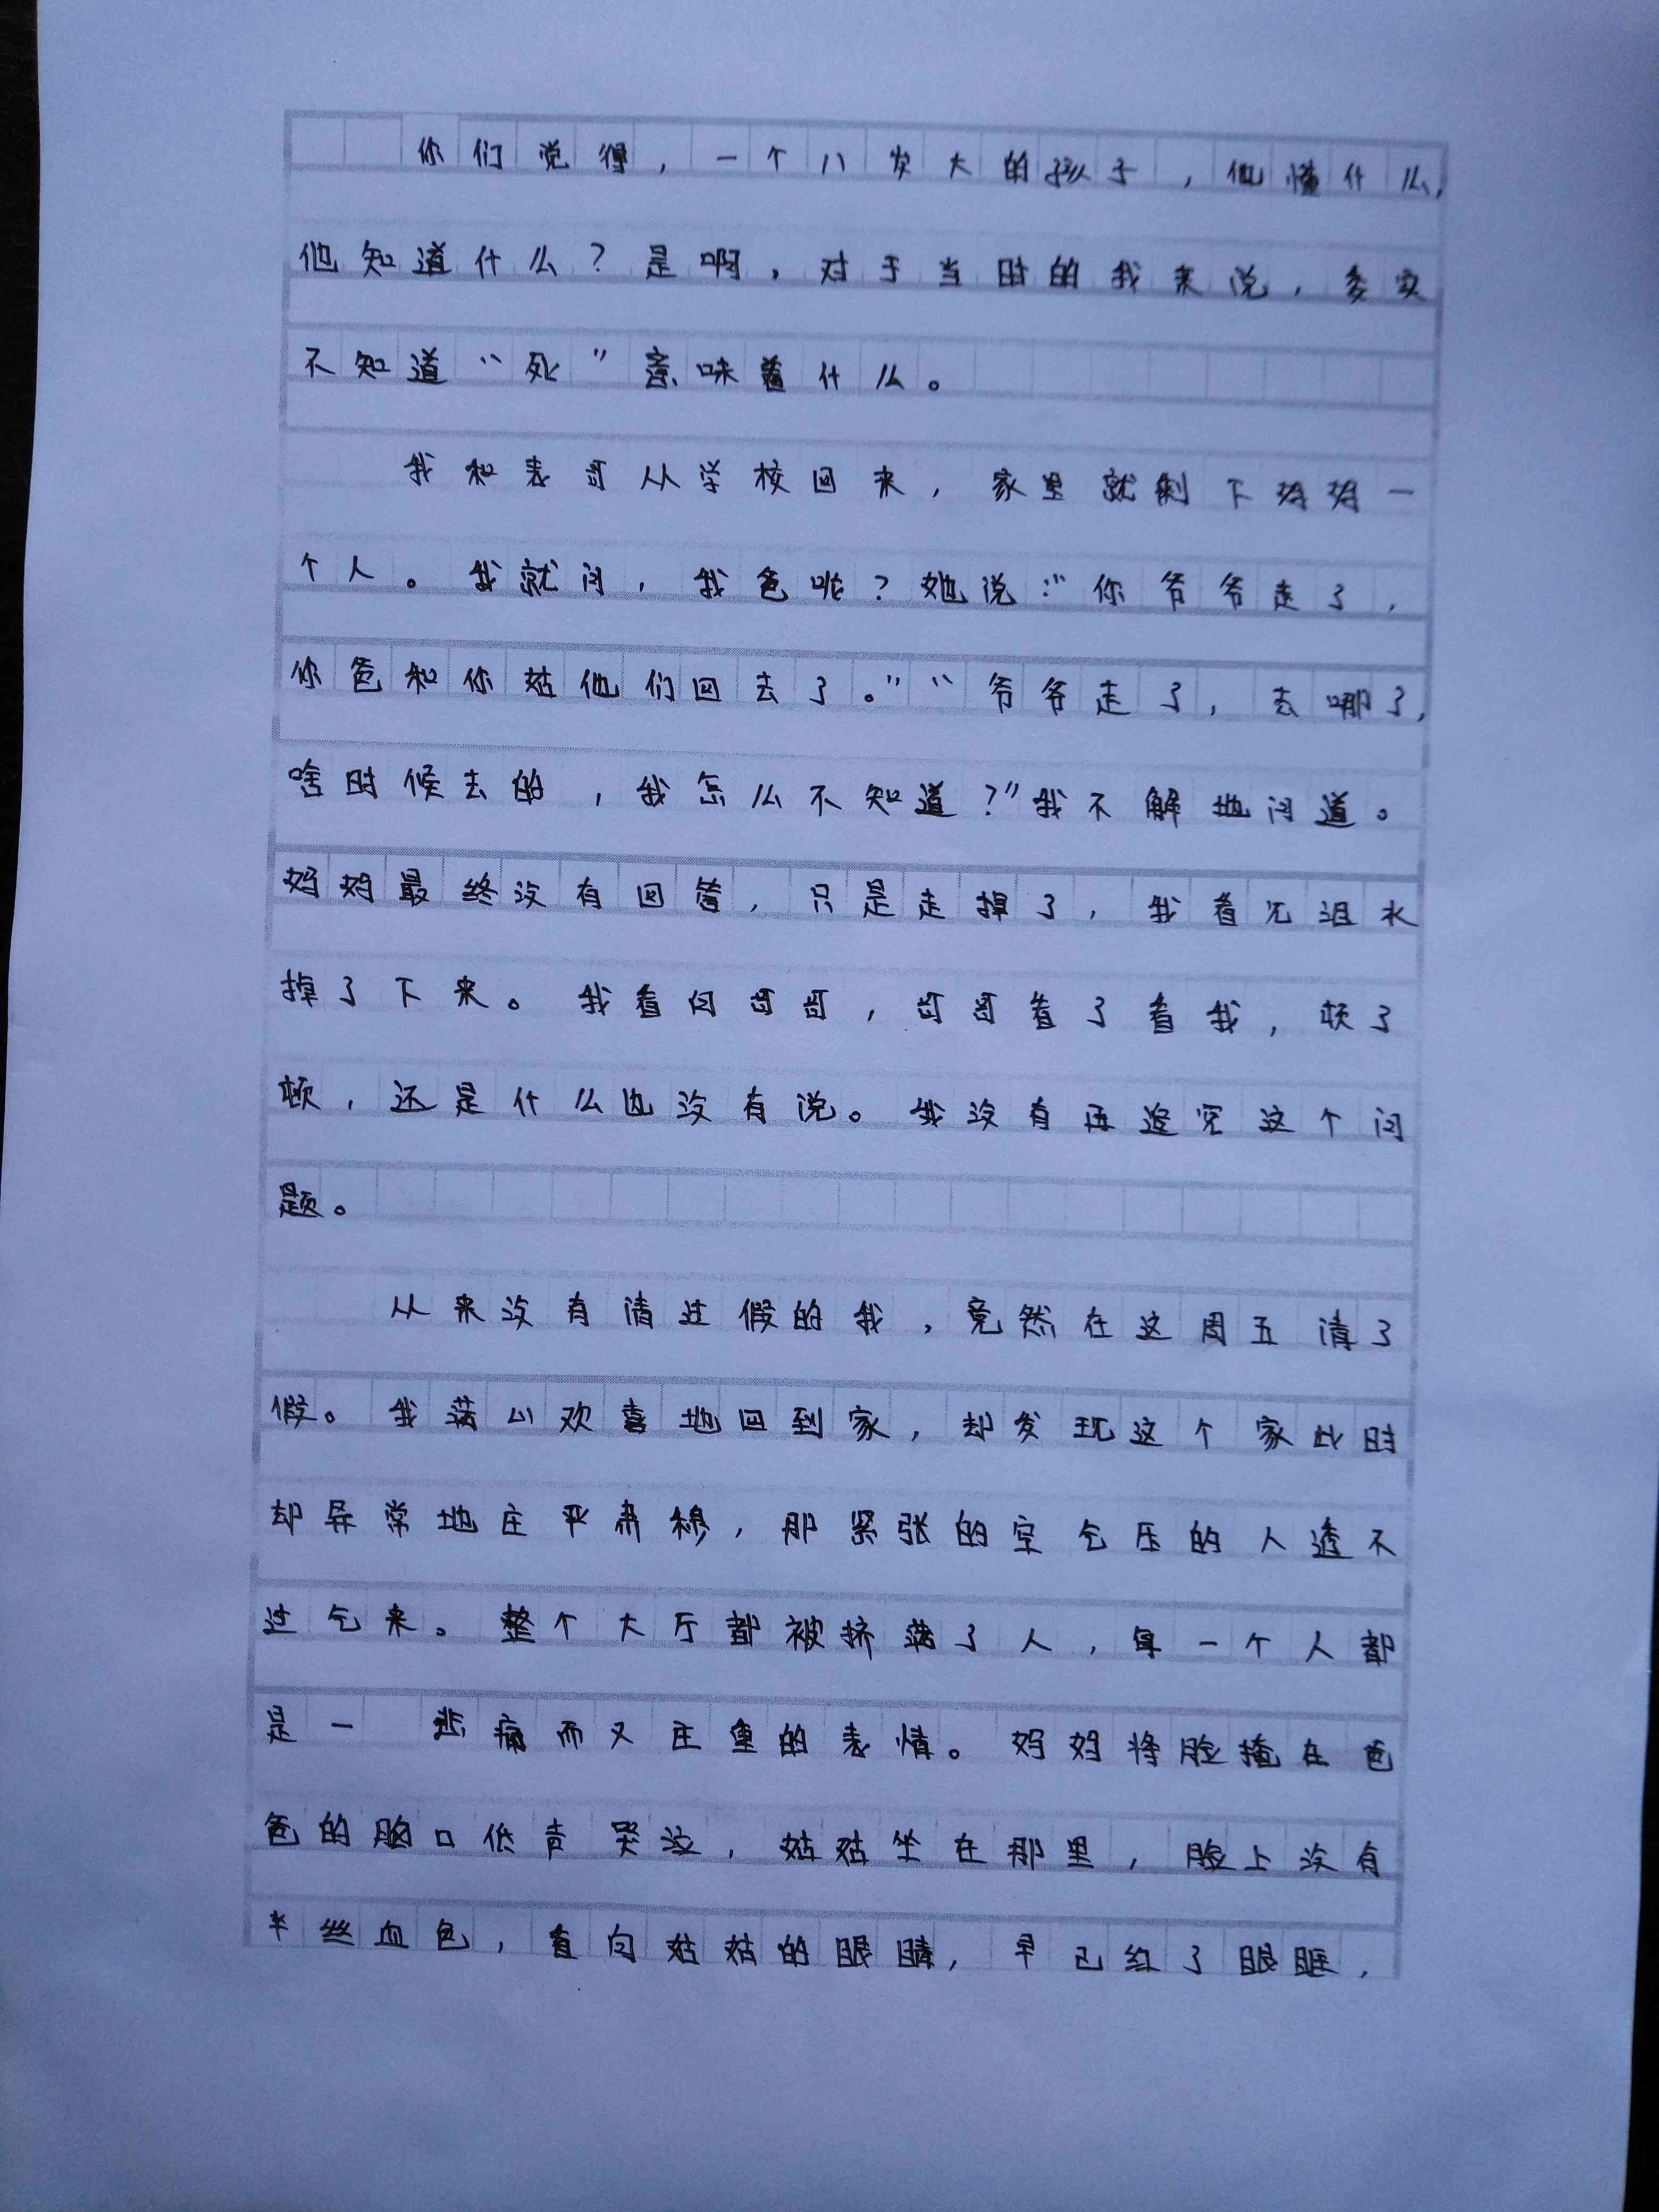 你们觉得，一个八岁大的孩子，他懂什么，
他知道什么？是啊，对于当时的我来说，委实
不知道“死”意味着什么。
我和表哥从学校回来，家里就剩下妈妈一
个人。我就问，我爸呢？她说：“你爷爷走了，
你爸和你姑他们回去了。”“爷爷走了，去哪了，
啥时候去的，我怎么不知道？”我不解地问道。
妈妈最终没有回答，只是走掉了，我看见泪水
掉了下来。我看向哥哥，哥哥看了看我，顿了
顿，还是什么也没有说。我没有再追究这个问
题。
从来没有请过假的我，竟然在这周五请了
假。我满心欢喜地回到家，却发现这个家此时
却异常地庄严肃穆，那紧张的空气压的人透不
过气来。整个大厅都被挤满了人，每一个人都
是一 悲痛而又庄重的表情。妈妈将脸掩在爸
爸的胸口低声哭泣，姑姑坐在那里，脸上没有
半丝血色，看向姑姑的眼睛，早已红了眼眶，